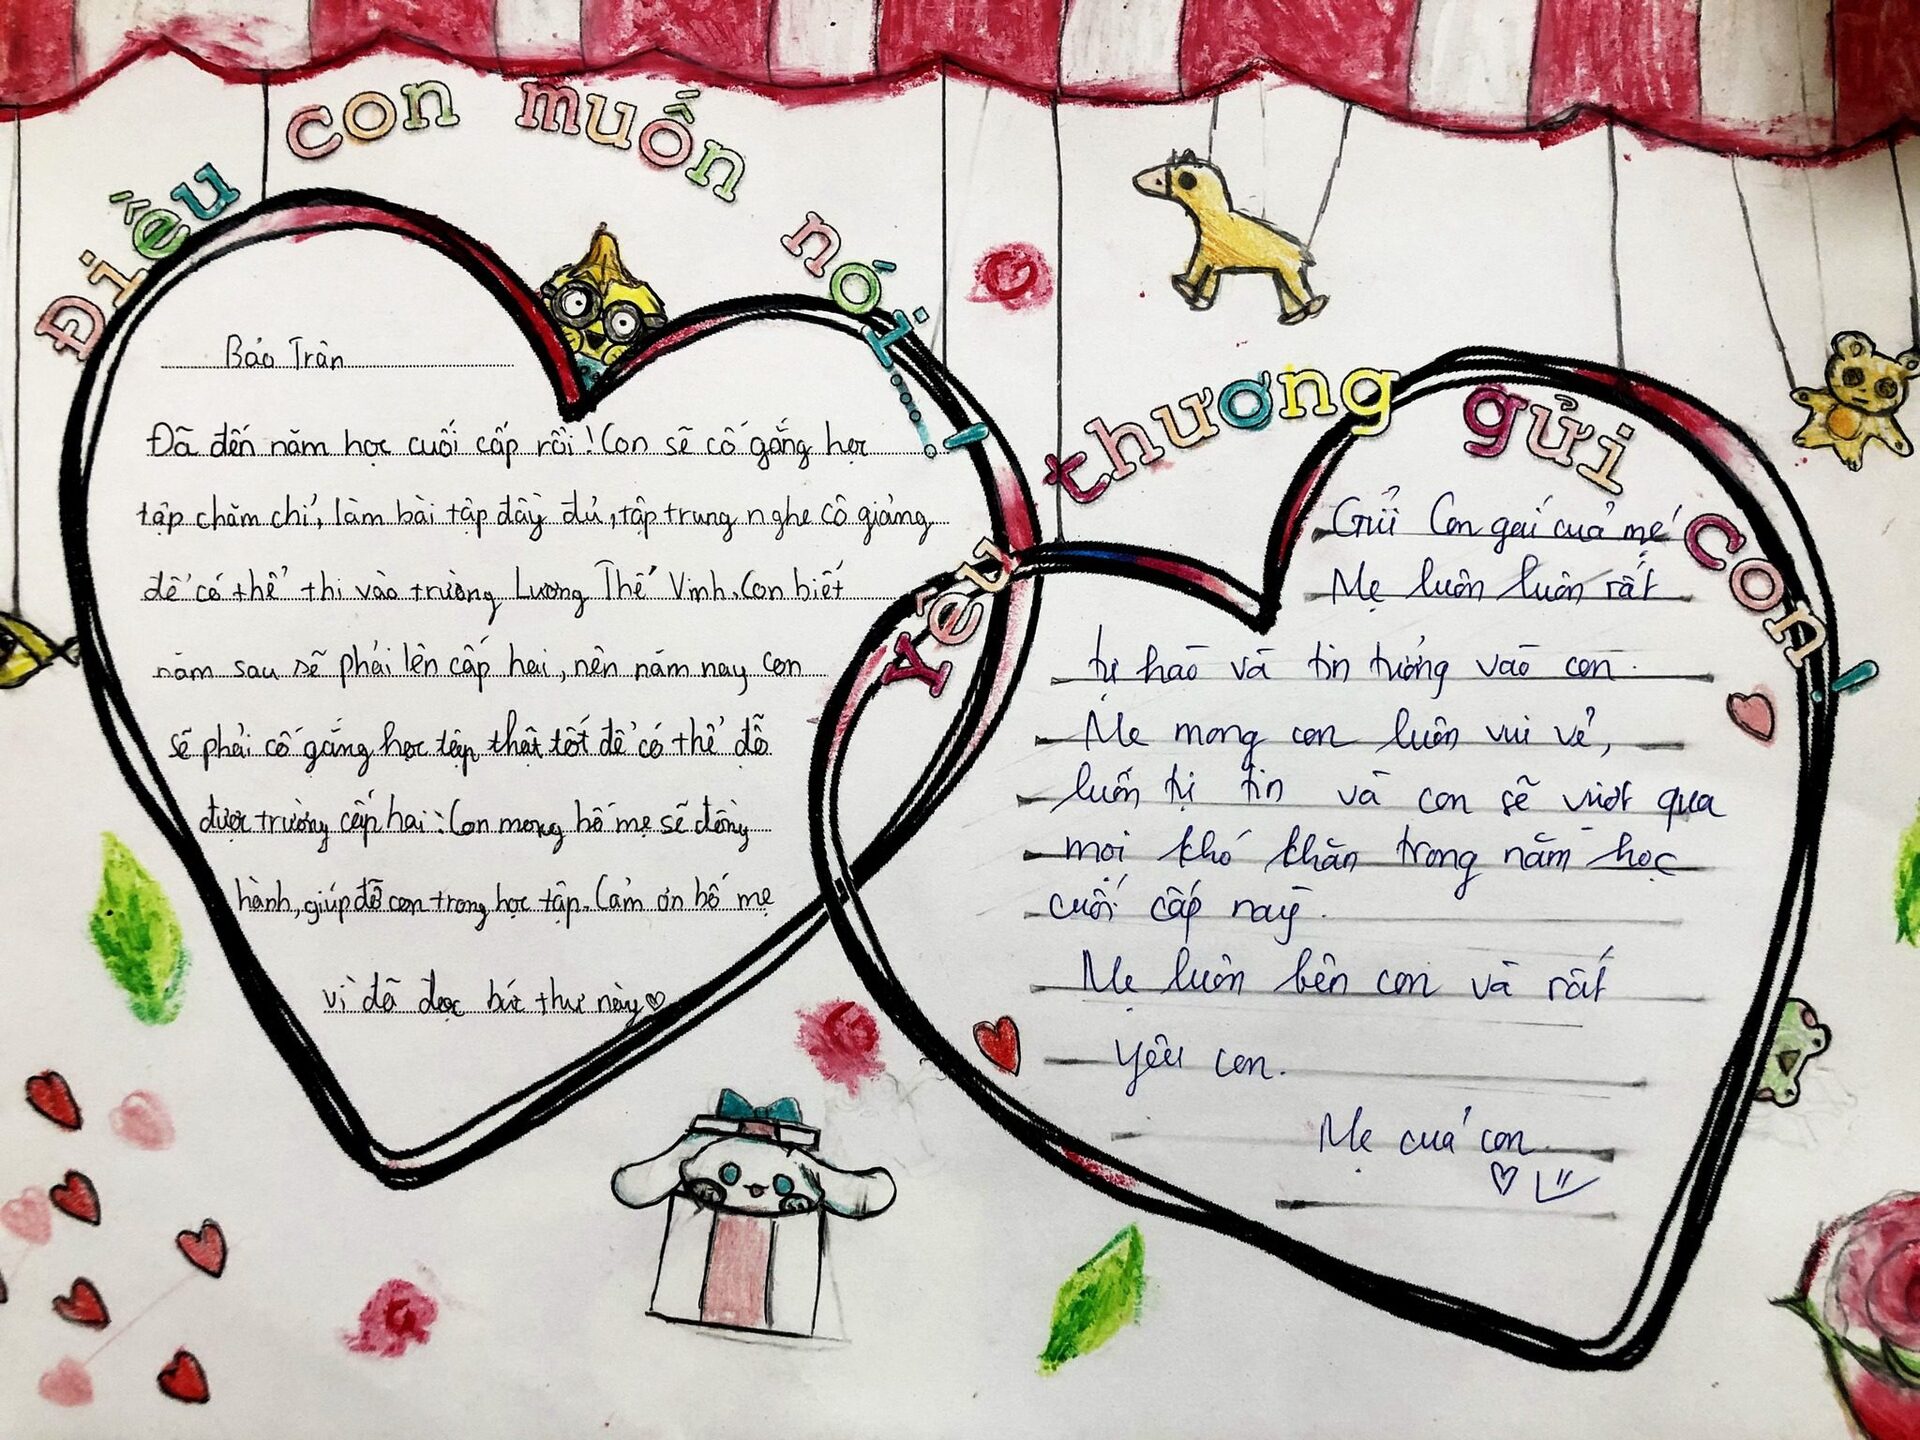 Điều con muốn nói.....!
Bảo Trân
Đã đến năm học cuối cấp rồi! Con sẽ cố gắng học
tập chăm chỉ, làm bài tập đầy đủ, tập trung nghe cô giảng
để có thể thi vào trường Lương Thế Vinh. Con biết
năm sau sẽ phải lên cấp hai, nên năm nay con
sẽ phải cố gắng học tập thật tốt để có thể đỗ
được trường cấp hai. Con mong bố mẹ sẽ đồng
hành, giúp đỡ con trong học tập. Cảm ơn bố mẹ
vì đã đọc bức thư này ♡
Yêu thương gửi con!
Gửi Con gái của mẹ!
Mẹ luôn luôn rất
tự hào và tin tưởng vào con.
Mẹ mong con luôn vui vẻ,
luôn tự tin và con sẽ vượt qua
mọi khó khăn trong năm học
cuối cấp này.
Mẹ luôn bên con và rất
yêu con.
Mẹ của con
♡